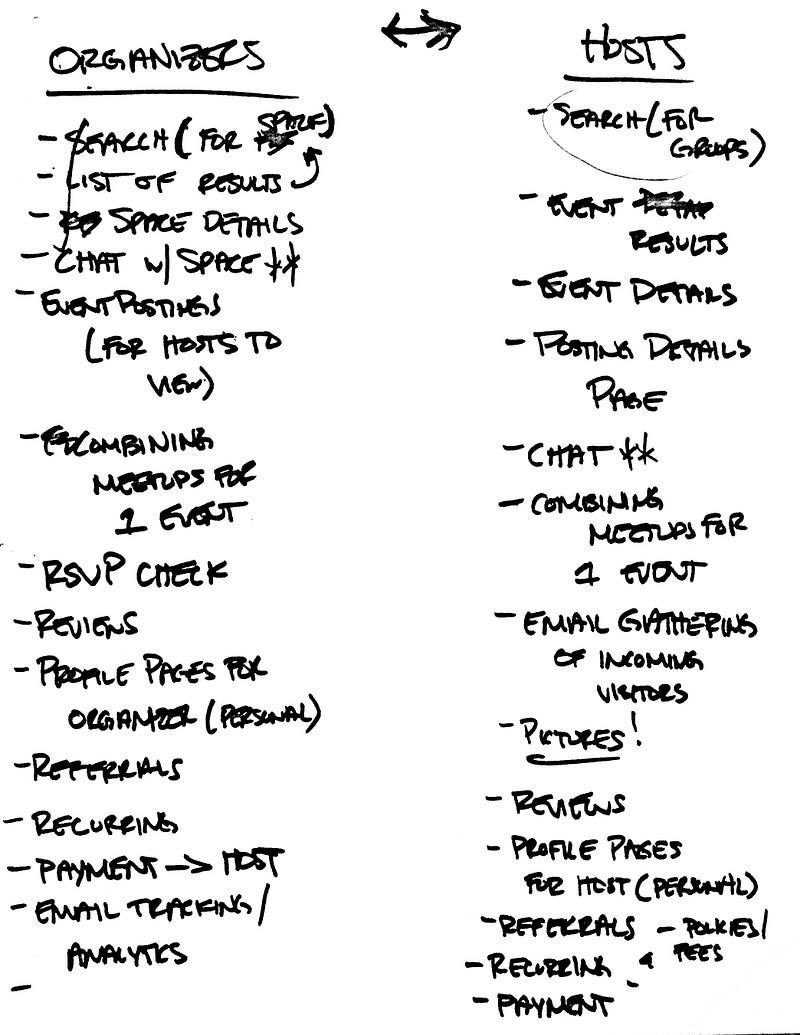 ORGANIZERS
- SEARCH (FOR SPACE)
- LIST OF RESULTS
- SPACE DETAILS
- CHAT W/ SPACE **
- EVENT POSTINGS
(FOR HOSTS TO
VIEW)
- COMBINING
MEETUPS FOR
1 EVENT
- RSVP CHECK
- REVIEWS
- PROFILE PAGES FOR
ORGANIZER (PERSONAL)
- REFERRALS
- RECURRING
- PAYMENT -> HOST
- EMAIL TRACKING/
ANALYTICS
-
↔
HOSTS
- SEARCH (FOR
GROUPS)
- EVENT
RESULTS
- EVENT DETAILS
- POSTING DETAILS
PAGE
- CHAT **
- COMBINING
MEETUPS FOR
1 EVENT
- EMAIL GATHERING
OF INCOMING
VISITORS
- PICTURES!
- REVIEWS
- PROFILE PAGES
FOR HOST (PERSONAL)
- REFERRALS - POLICIES/
FEES
- RECURRING
- PAYMENT